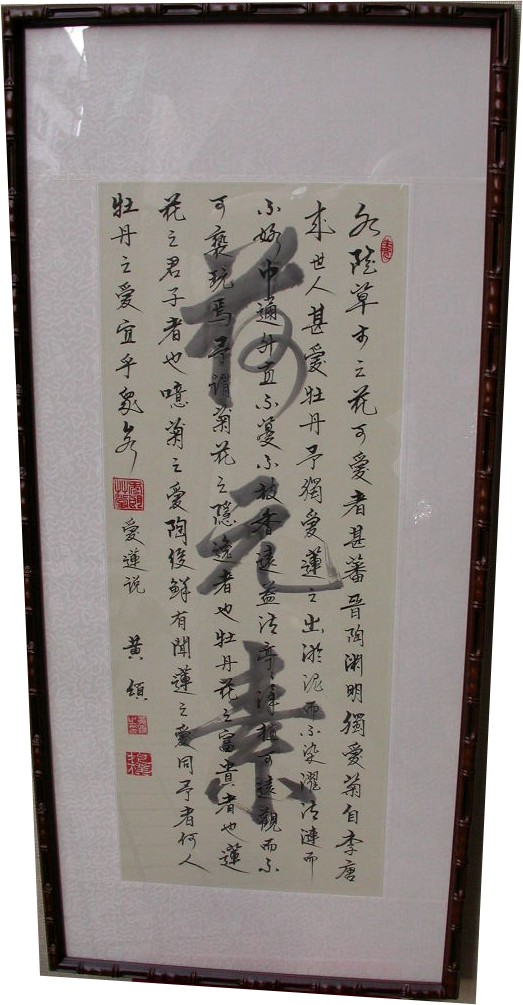 水陸草木之花可愛者甚蕃晉陶淵明獨愛菊自李唐
來世人甚愛牡丹予獨愛蓮之出淤泥而不染濯清漣而
不妖中通外直不蔓不枝香遠益清亭〻淨植可遠觀而不
可褻玩焉予謂菊花之隱逸者也牡丹花之富貴者也蓮
花之君子者也噫菊之愛陶後鮮有聞蓮之愛同予者何人
牡丹之愛宜乎眾矣
愛蓮说
黄
荷元素